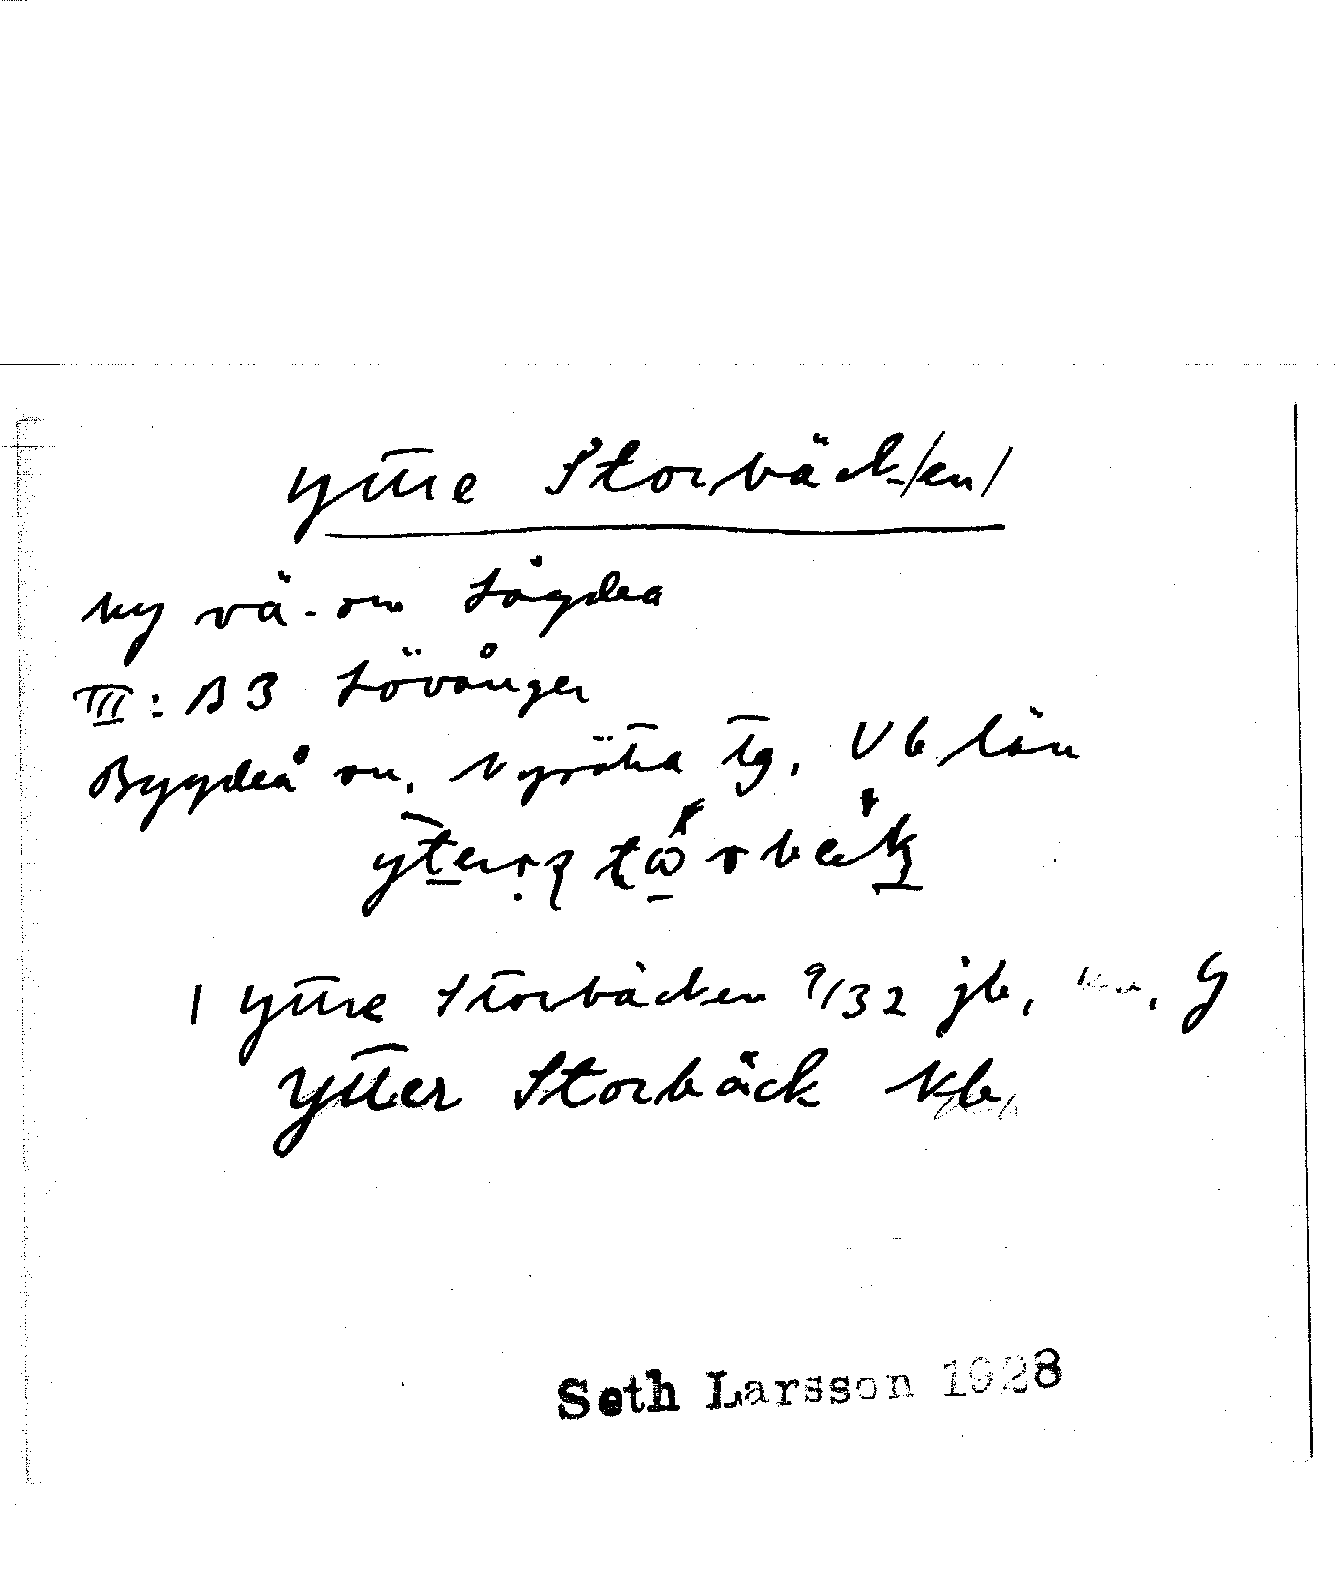 Yttre Storbäck/en/
by vä. om Lögdea
III: B3 Lövånger
Bygdeå sn, Nysätra tg, Vb län
1 Yttre Storbäcken 9/32 jb, G
Ytter Storbäck kb
Seth Larsson 1928